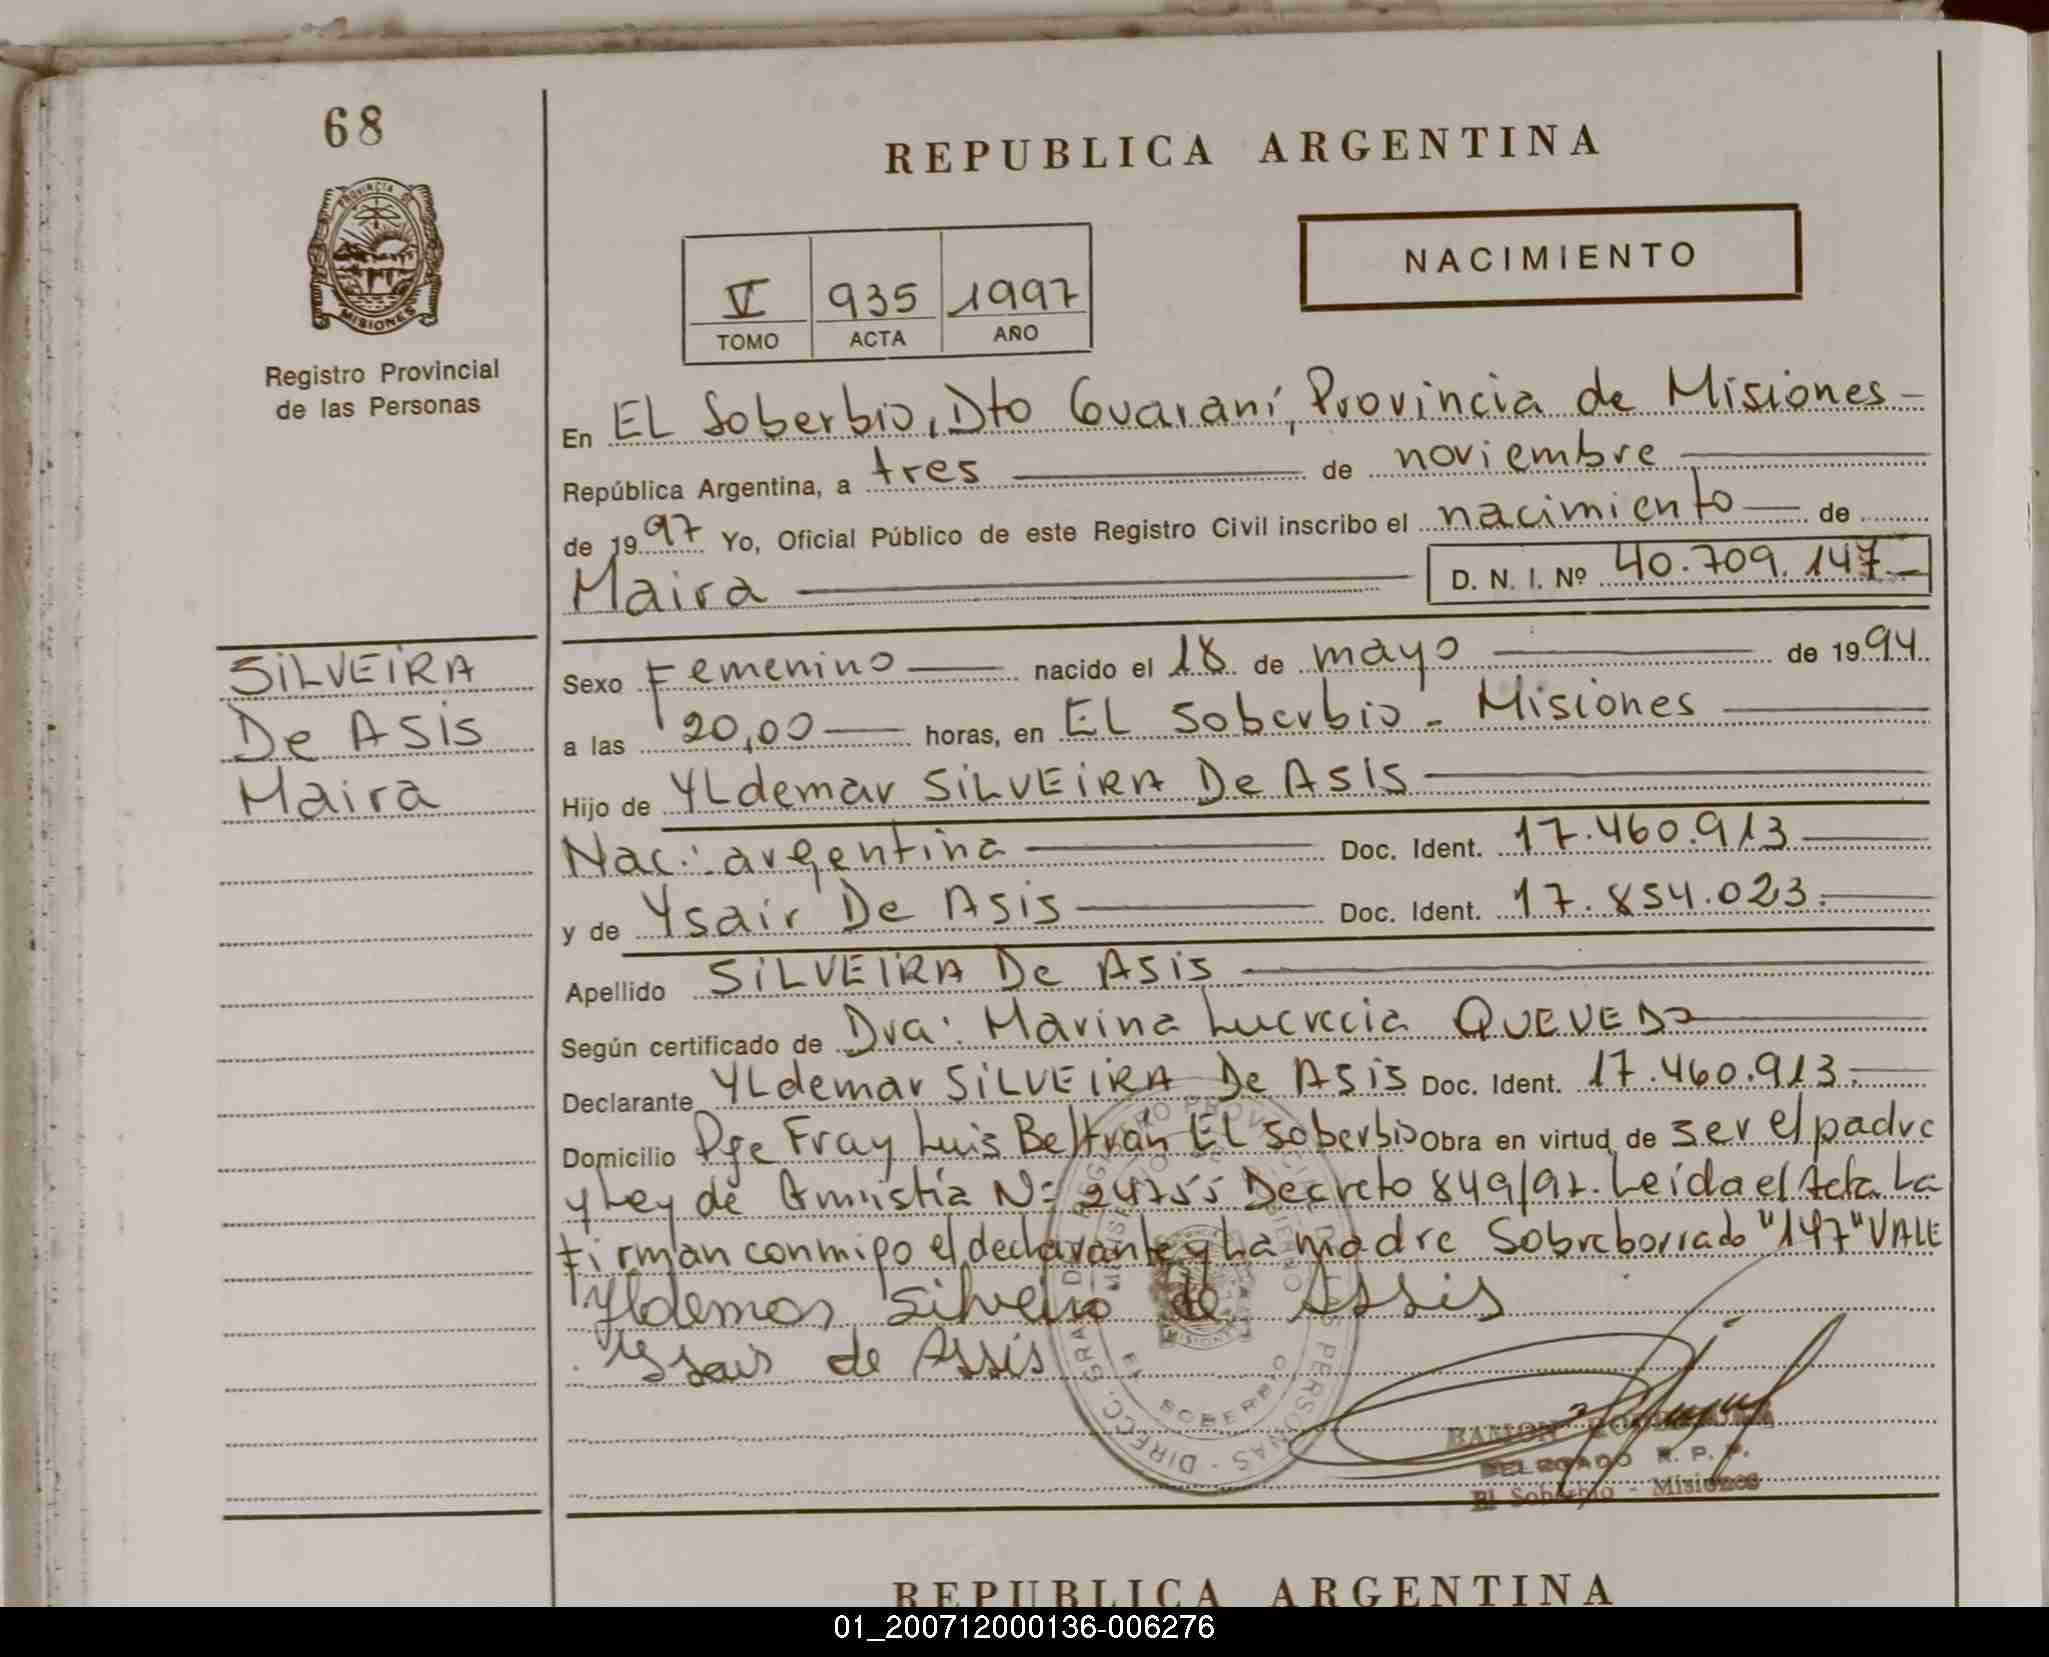 68
REPUBLICA ARGENTINA
PROVINCIA DE
MISIONES
Registro Provincial
de las Personas
NACIMIENTO
V 935 1997
TOMO ACTA AÑO
En EL Soberbio, Dto Guaraní, Provincia de Misiones -
República Argentina, a tres de noviembre
de 1997 Yo, Oficial Público de este Registro Civil inscribo el nacimiento de
Maira D. N. I. Nº 40.709.147.-
SILVEIRA
De ASIS
Maira
Sexo Femenino nacido el 18 de mayo de 1994
a las 20,00 horas, en EL Soberbio - Misiones
Hijo de YLdemar SILVEIRA De ASIS
Nac: argentina Doc. Ident. 17.460.913
y de Ysair De Asis Doc. Ident. 17.854.023.
Apellido SILVEIRA De ASIS
Según certificado de Dra: Marina Lucrecia QUEVEDO
Declarante YLdemar SILVEIRA De ASIS Doc. Ident. 17.460.913.
Domicilio Pje Fray Luis Beltrán EL Soberbio Obra en virtud de ser el padre
y Ley de Amnistía N: 24755 Decreto 849/97. Leída el Acta La
firman conmigo el declarante y La madre Sobreborrado "147" VALE
Yldemar Silveira de Assis
Ysair de Assis
EL SOBERBIO
MISIONES
RAMON
DELEGADO R. P. P.
El Soberbio - Misiones
REPUBLICA ARGENTINA
01_200712000136-006276